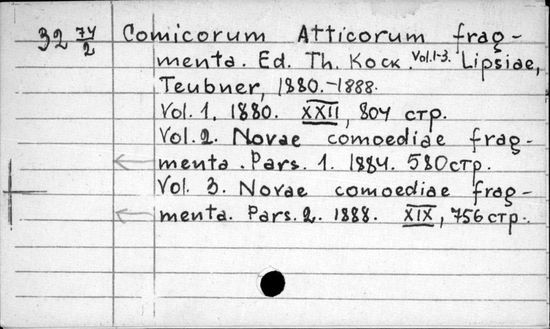 32 74/2 Comicorum Atticorum frag-
menta. Ed. Th. Kock. Vol.1-3. Lipsiae,
Teubner, 1880.-1888.
Vol. 1. 1880. XXII, 804 стр.
Vol. 2. Novae comoediae frag-
menta. Pars. 1. 1884. 580стр.
Vol. 3. Novae comoediae frag-
menta. Pars. 2. 1888. XIX, 756стр.